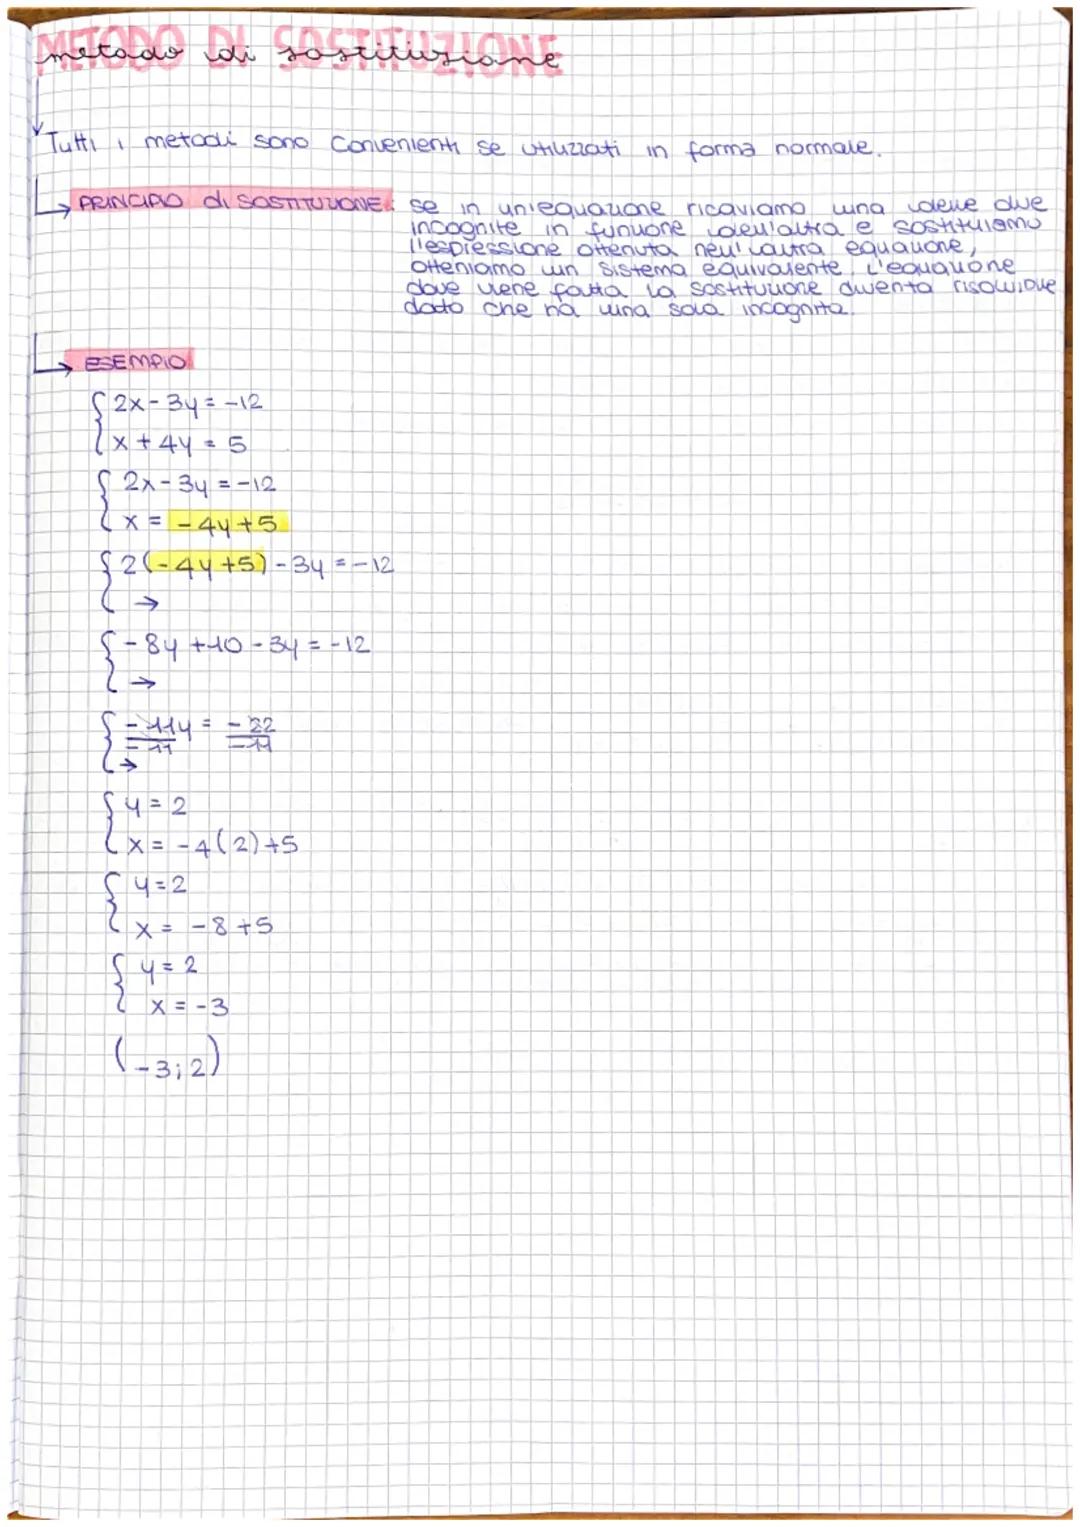 METODO DI SOSTITUZIONE
metodo di sostituzione
Tutti i metodi sono convenienti se utilizzati in forma normale.
PRINCIPIO di SOSTITUZIONE: se in un'equazione ricaviamo una delle due
incognite in funzione dell'altra e sostituiamo
l'espressione ottenuta nell'altra equazione,
otteniamo un sistema equivalente. L'equazione
dove viene fatta la sostituzione diventa risolvibile
dato che ha una sola incognita.
ESEMPIO
2x-3y=-12
x+4y=5
2x-3y=-12
x=-4y+5
2(-4y+5)-3y=-12
→
-8y+10-3y=-12
→
-11y = -22
-11 -11
→
y=2
x=-4(2)+5
y=2
x=-8+5
y=2
x=-3
(-3;2)